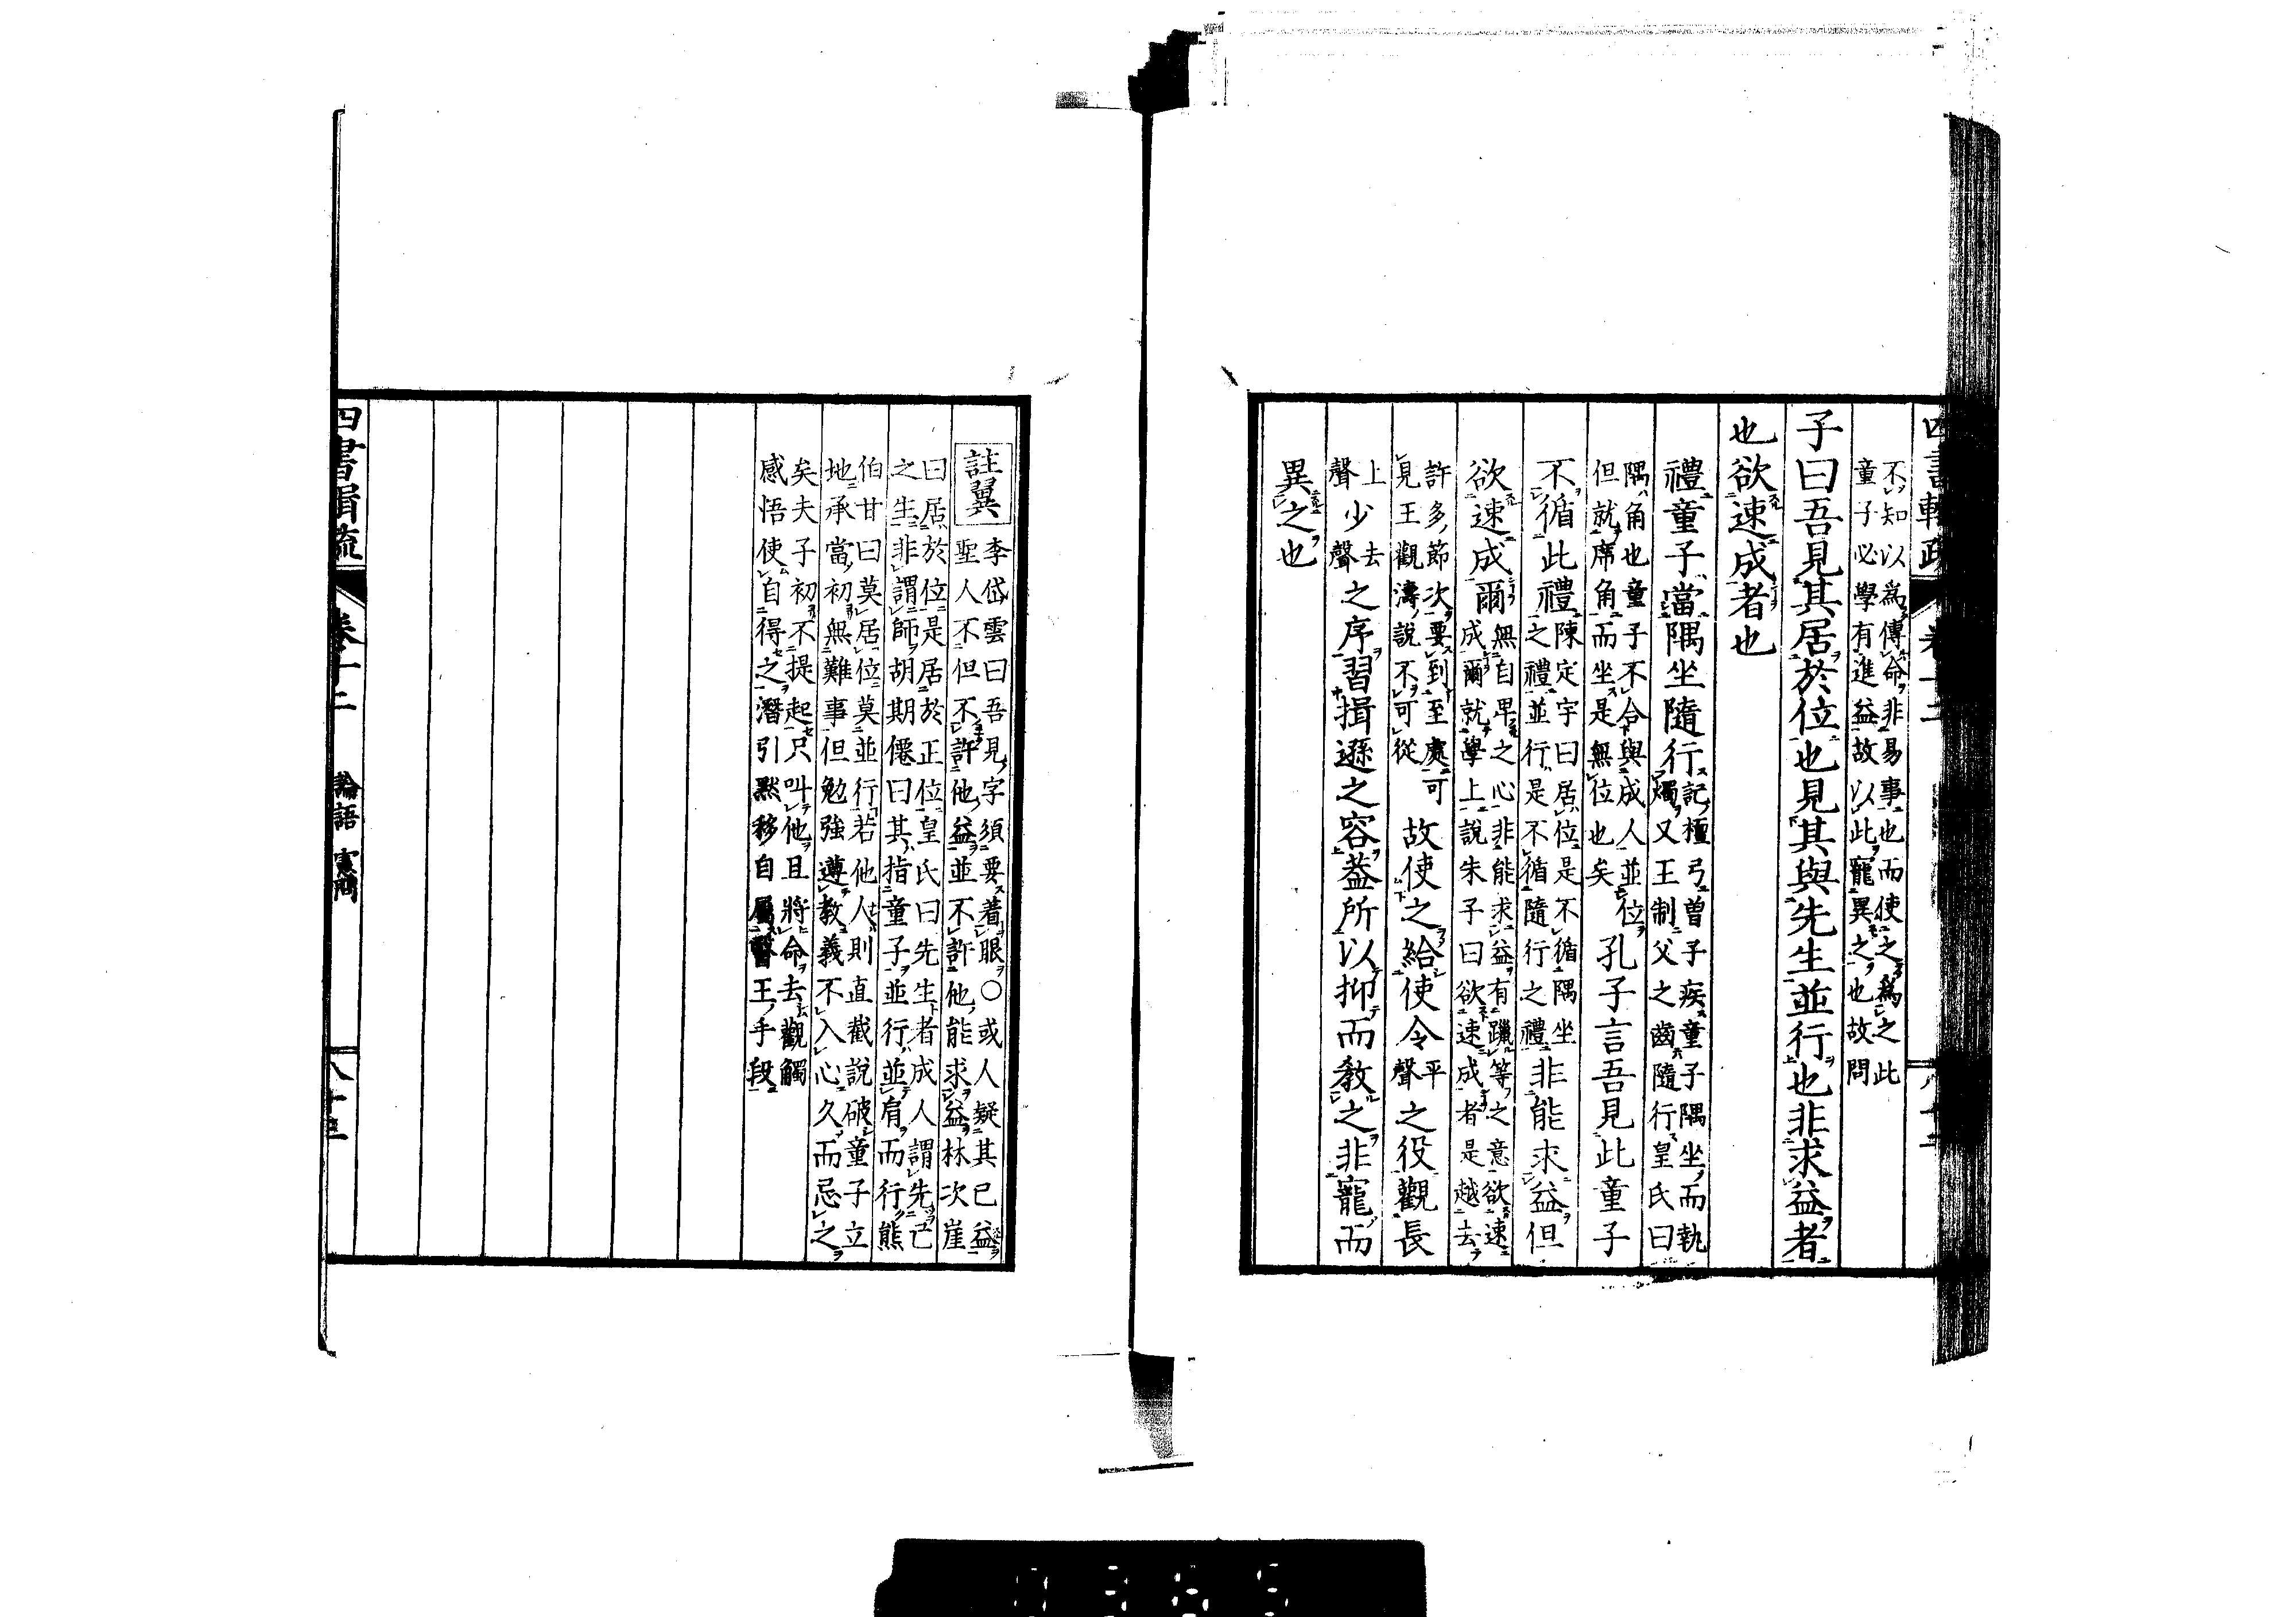 不知以爲傳命非易事也而使之爲之此
童子必學有進益故以此寵異之也故問
子曰吾見其居於位也見其與先生並行也非求益者
也欲速成者也
禮童子當隅坐隨行記檀弓曽子疾童子隅坐而執
燭又王制父之齒隨行皇氏曰
隅角也童子不合與成人並位
但就席角而坐是無位也矣
孔子言吾見此童子
不循此禮陳定宇曰居位是不循隅坐
之禮並行是不循隨行之禮
非能求益但
欲速成爾無自卑之心非能求益有躐等之意欲速
成爾就學上說朱子曰欲速成者是越去
許多節次要到至處可
見王觀濤說不可從
故使之給使令平
聲之役觀長
上
聲少去
聲之序習揖遜之容葢所以抑而敎之非寵而
異之也
註翼
李岱雲曰吾見字須要着眼○或人疑其已益
聖人不但不許他益並不許他能求益林次崖
曰居於位是居於正位皇氏曰先生者成人謂先己
之生非謂師胡期僊曰其指童子並行並肩而行熊
伯甘曰莫居位莫並行若他人則直截說破童子立
地承當初無難事但勉強遵教義不入心久而忌之
矣夫子初不提起只叫他且將命去觀觸
感悟使自得之潛引默移自屬聖王手段
四書輯疏
卷十二
論語
憲問
八十三